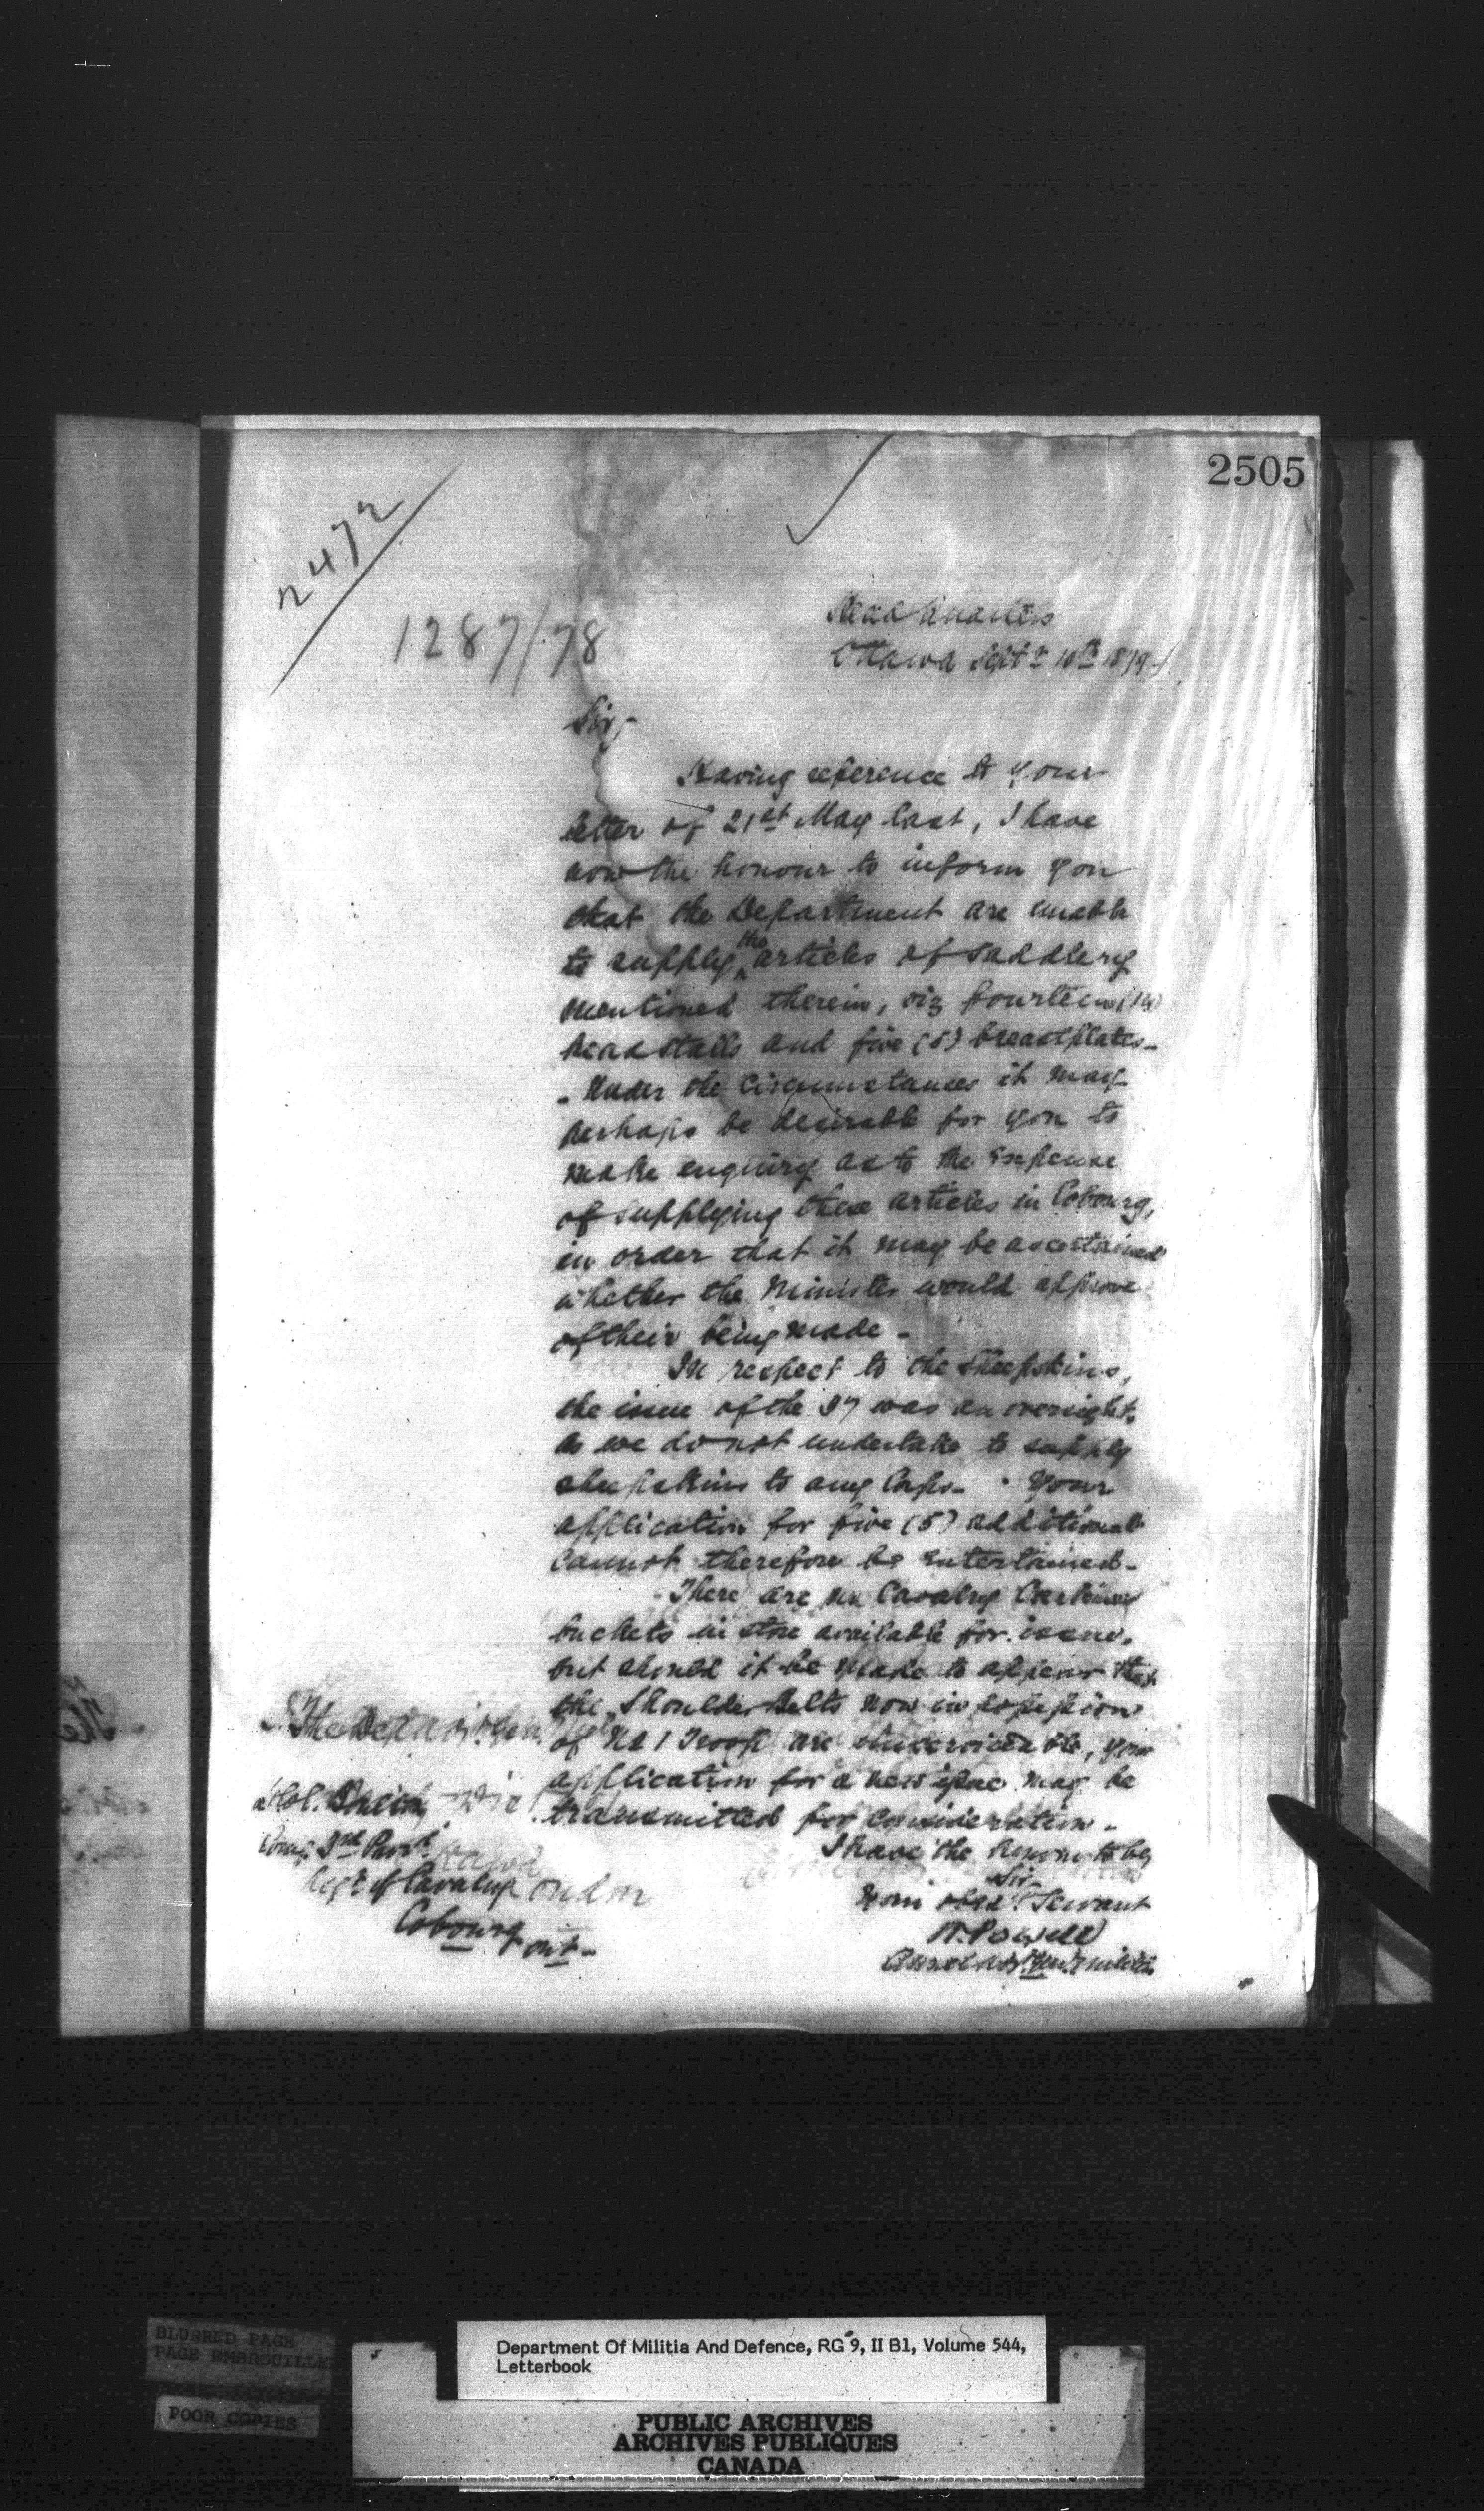 2505
2472
1287/78
Head Quarters
Ottawa Septr 10th 1879
Sir,
Having reference to your
letter of 21st May last, I have
now the honour to inform you
that the Department are unable
to supply the articles of Saddlery
mentioned therein, viz fourteen (14)
headstalls and five (5) breastplates-
- Under the circumstances it may
perhaps be desirable for you to
make enquiry as to the expense
of supplying these articles in Cobourg,
in order that it may be ascertained
whether the Minister would approve
of their being made -
In respect to the Sheepskins,
the issue of the 37 was an oversight,
as we do not undertake to supply
sheepskins to any Corps - Your
application for five (5) additional
cannot therefore be entertained -
There are no Cavalry Carbine
buckets in store available for issue,
but should it be made to appear that
the Shoulder Belts now in possession
of No 1 Troop are unserviceable, your
application for a new issue may be
transmitted for consideration -
I have the honour to be,
Sir
Your obedt Servant
W. Powell
Genl Militia
Lt Col.
Comg 3rd Provl
Regt of Cavalry
Cobourg Ont-
BLURRED PAGE
PAGE EMBROUILLEE
POOR COPIES
Department Of Militia And Defence, RG 9, II B1, Volume 544,
Letterbook
PUBLIC ARCHIVES
ARCHIVES PUBLIQUES
CANADA